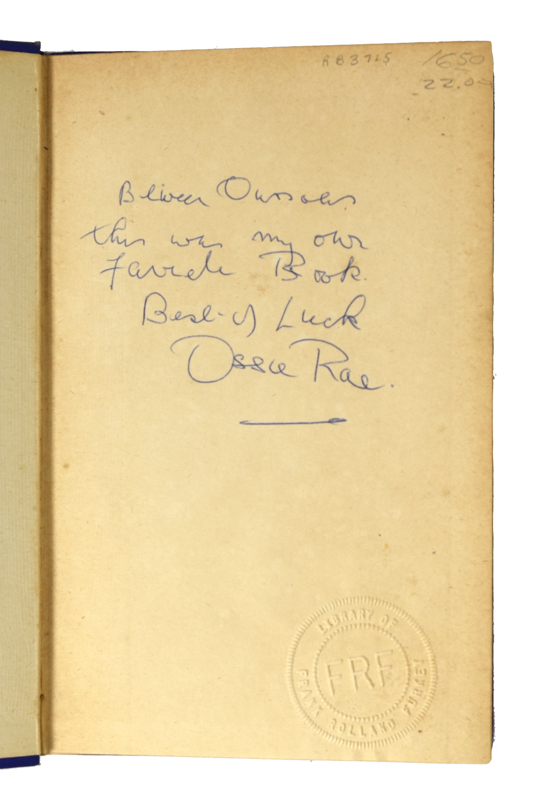 RB3725
1650
22.0
Between Ourselves
this was my own
Favorite Book.
Best of Luck
Ossie Rae.
LIBRARY OF
FRF
FRANK ROLLAND